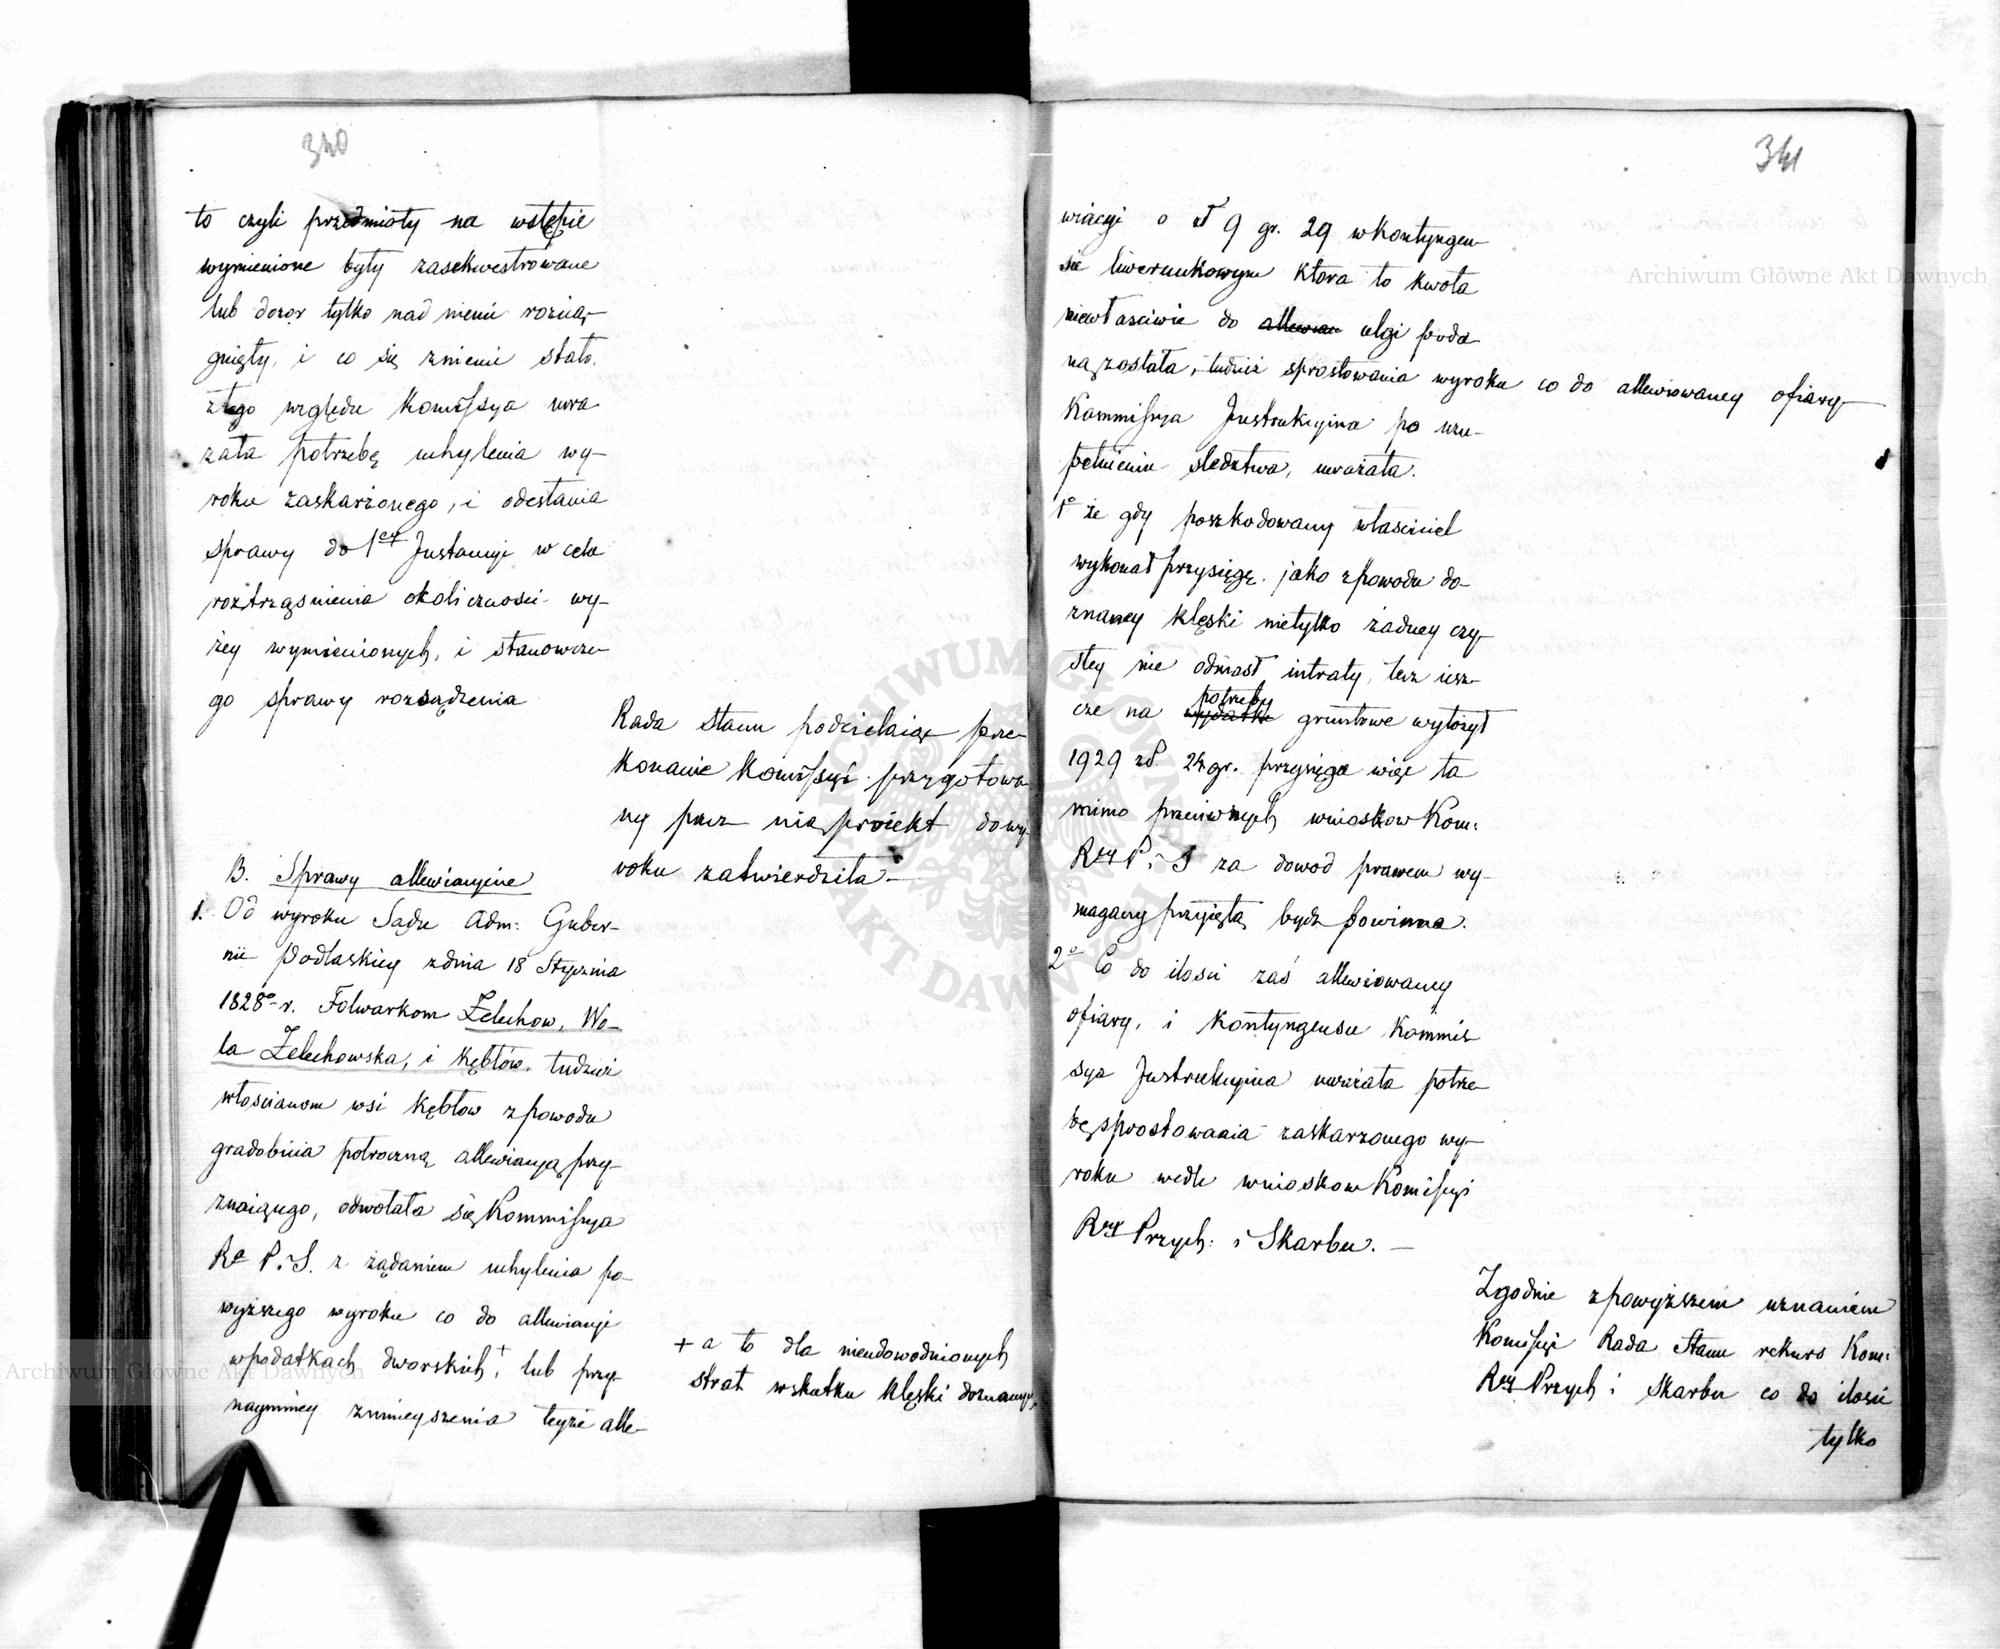 340
to czyli przedmioty na wstępie
wymienione były zasekwestrowane
lub dozor tylko nad niemi roziąg-
gnięty, i co się zniemi stało.
ztego względu Komissya uwa
żała potrzebę uchylenia wy-
roku zaskarżonego, i odesłania
sprawy do 1ey Instancyi w celu
roztrząsnienia okoliczności wy-
żey wymienionych, i stanowcze-
go sprawy rozsądzenia
Rada Stanu podzielaiąc prze-
konanie Komissyi przygotowa
ny przez nią proiekt dowy-
roku zatwierdziła.—
B. Sprawy allewiacyine
1. Od wyroku Sądu Adm: Guber-
nii Podlaskiey zdnia 18 Stycznia
1828o r. Folwarkom Żelechow, Wo-
la Żelechowska, i Kębłów, tudzież
włościanom wsi Kębłow zpowodu
gradobicia półroczną allewiacyą przy-
znaiącego, odwołała się Kommissya
Ra P. i S. z żądaniem uchylenia po-
wyższego wyroku co do allewiacyi
wpodatkach dworskich,+ lub przy-
naymniey zmnieyszenia teyże alle-
+ a to dla nieudowodnionych
strat wskutku klęski doznanych,
341
wiacyi o zł 9 gr. 29 wKontyngen-
sie liwerunkowym która to kwota
niewłaściwie do allewiac ulgi poda
ną została, tudzież sprostowania wyroku co do allewiowaney ofiary—
Kommissya Instrukcyina po uzu-
pełnieniu śledztwa, uważała.
1o że gdy poszkodowany właściciel
wykonał przysięgę, jako zpowodu do-
znaney klęski nietylko żadney czy-
stey nie odniosł intraty, lecz iesz-
potrzeby
cze na wydatki gruntowe wyłożył
1929 zł. 24 gr. przysięga więc ta
mimo przeciwnych wnioskow Kom:
Rzy P. i S za dowod prawem wy-
magany przyiętą bydź powinna.
2o Co do ilości zaś allewiowaney
ofiary, i kontyngensu Kommis-
sya Instrukcyina uważała potrze-
bę sprostowania zaskarzonego wy-
roku wedle wnioskow Komissyi
Rzy Przych: i Skarbu.—
Zgodnie zpowyższem uznaniem
Komissyi Rada Stanu rekurs Kom:
Rzy Przych i Skarbu co do ilości
tylko
Archiwum Główne Akt Dawnych
Archiwum Główne Akt Dawnych
ARCHIWUM GŁÓWNE AKT DAWNYCH